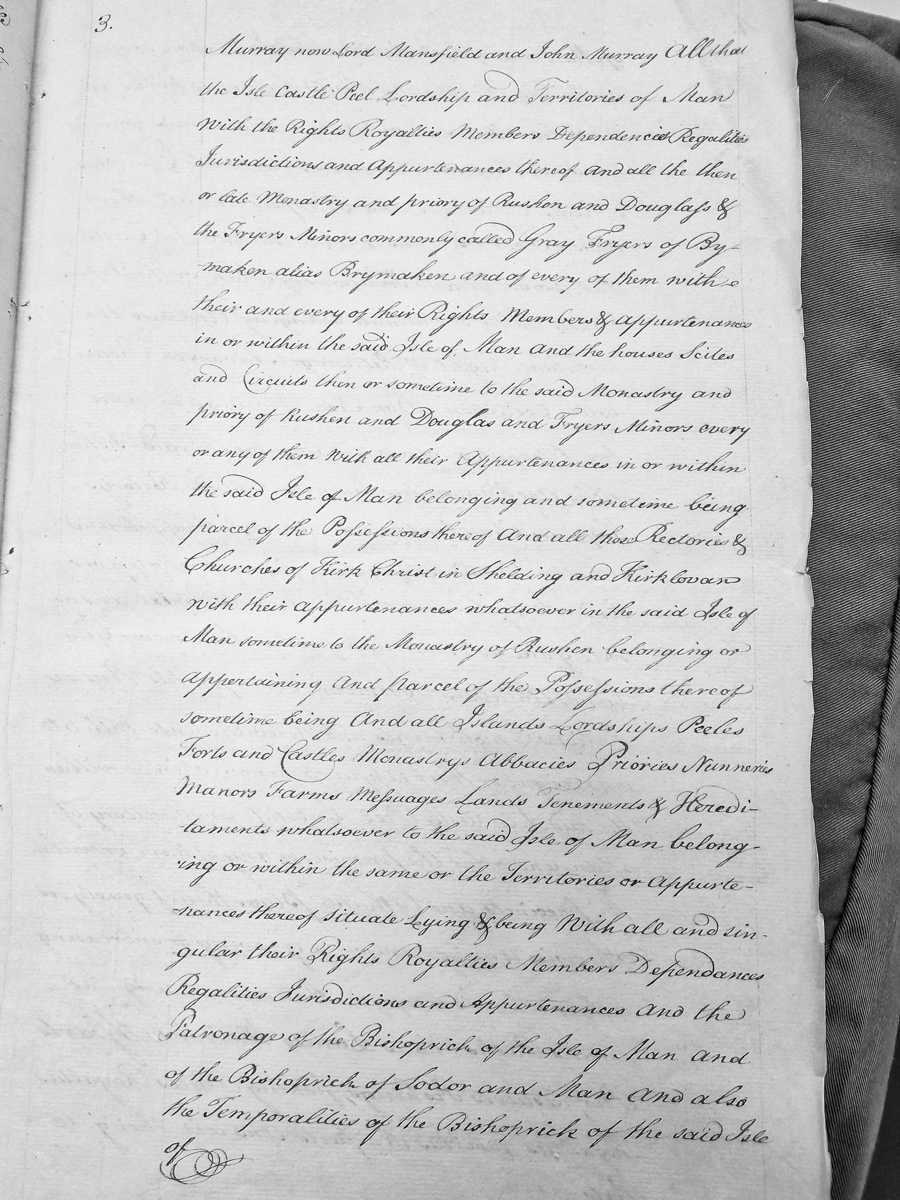 3.
Murray now Lord Mansfield and John Murray All that
the Isle Castle Peel Lordship and Territories of Man
With the Rights Royalties Members Dependencies Regalities
Jurisdictions and Appurtenances thereof And all the then
or late Monastry and priory of Rushen and Douglass &
the Fryers Minors commonly called Gray Fryers of By-
-maken alias Brymaken and of every of them with
their and every of their Rights Members & Appurtenances
in or within the said Isle of Man And the houses Scites
and Circuits then or sometime to the said Monastry and
priory of Rushen and Douglas and Fryers Minors every
or any of them With all their Appurtenances in or within
the said Isle of Man belonging and sometime being
parcel of the Possessions thereof And all those Rectories &
Churches of Kirk Christ in Shelding and Kirklovan
with their Appurtenances whatsoever in the said Isle of
Man sometime to the Monastry of Rushen belonging or
appertaining And parcel of the Possessions thereof
sometime being And all Islands Lordships Peeles
Forts and Castles Monastrys Abbacies Priories Nunneries
Manors Farms Messuages Lands Tenements & Heredi-
-taments whatsoever to the said Isle of Man belong-
-ing or within the same or the Territories or Appurte-
-nances thereof Situate Lying & being With all and sin-
gular their Rights Royalties Members Dependances
Regalities Jurisdictions and Appurtenances And the
Patronage of the Bishoprick of the Isle of Man And
of the Bishoprick of Sodor and Man And also
the Temporalities of the Bishoprick of the said Isle
of